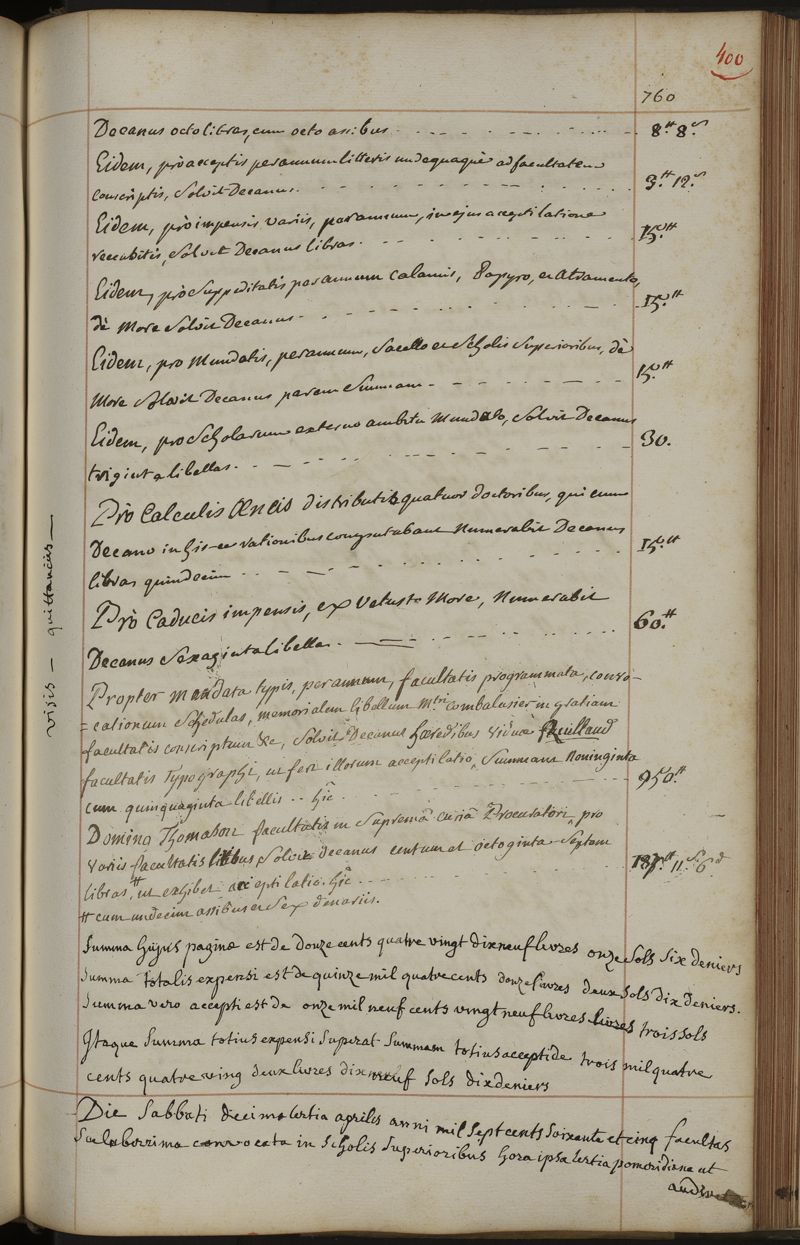 400
760
Decanus octo libras, cum octo assibus 8.tt 8.s
Eidem, prò acceptis per annum litteris undequaquè ad facultatem
conscriptis, Solvit Decanus 3.tt 12.s
Eidem, prò impensis variis, per annum, in ejus acceptilatione
recensitis, Solvit Decanus libras 15.tt
Eidem, prò Suppeditatis per annum Calamis, Papyro, et Atramento,
dè More Solvit Decanus 15.tt
Eidem, pro Mundatis, per annum, Sacello et Scholis Superioribus, dè
More Solvit Decanus parem Summam 15.tt
Eidem, pro Scholarum externo ambitu Mundato, Solvit Decanus
triginta libellas 30.
Prò Calculis Æneis distributis quatuor doctoribus, qui cum
Decano in his-ce rationibus computabant Numerabit Decanus
libras quindecim 15.tt
Prò Caducis impensis, ex Vetusto More, Numerabit
Decanus Sexaginta libellas 60.tt
visis - quittanciis
Propter mandata typis, per annum, facultatis programmata, convo-
=cationum Schedulas, memorialem libellum Mtri Combalusier in gratiam
facultatis conscriptum &c, Solvit Decanus hæredibus Viduæ Quillaud
facultatis Typographi, ut fert illorum acceptilatio, Summam Noninginta
cum quinquaginta libellis -- hic 950.tt
Domino Thomason facultatis in Supremâ curiâ Procuratori, pro
Variis facultatis litibus Solvit Decanus centum et octoginta Septem
libras, # ut exhibet acceptilatio. hic 187.tt 11.s 6.d
# cum undecim assibus et Sex denariis.
Summa hujus paginæ est de douze cents quatre vingt dix neuf livres onze Sols Six deniers
Summa totalis expensi est de quinze mil quatre cents douze livres deux Sols dix deniers.
Summa vero accepti est de onze mil neuf cents vingt neuf livres livres trois sols
Itaque Summa totius expensi Superat Summam totius accepti de trois mil quatre
cents quatre ving deux livres dix neuf Sols dix deniers
Die Sabbati decima tertia aprilis anni mil Sept cents Soixante et cinq facultas
Saluberrima convocata in Scholis Superioribus hora ipsa tertia pomeridiana ut